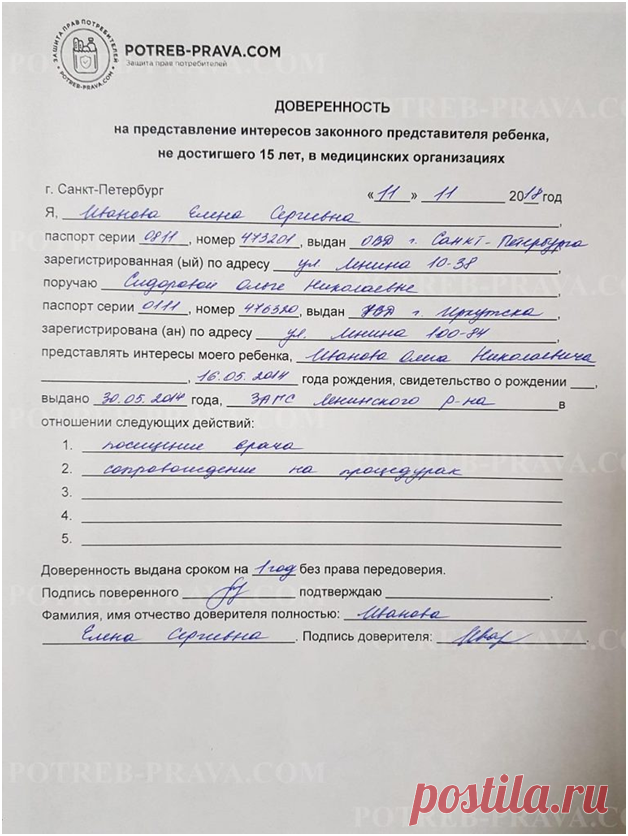 ЗАЩИТА ПРАВ ПОТРЕБИТЕЛЕЙ
POTREB-PRAVA.COM
POTREB-PRAVA.COM
Защита прав потребителей
ДОВЕРЕННОСТЬ
на представление интересов законного представителя ребенка,
не достигшего 15 лет, в медицинских организациях
г. Санкт-Петербург « 11 » 11 2018 год
Я, Иванова Елена Сергиевна,
паспорт серии 0811, номер 473201, выдан ОВД г. Санкт-Петербурга
зарегистрированная (ый) по адресу ул. Ленина 10-38,
поручаю Сидоровой Ольге Николаевне,
паспорт серии 0111, номер 476320, выдан г. Иркутска,
зарегистрирована (ан) по адресу ул. Ленина 100-84,
представлять интересы моего ребенка, Иванова Олега Николаевича
, 16.05.2014 года рождения, свидетельство о рождении ,
выдано 30.05.2014 года, ЗАГС Ленинского р-на в
отношении следующих действий:
1. посещение врача
2. сопровождение на процедурах
3.
4.
5.
Доверенность выдана сроком на 1 год без права передоверия.
Подпись поверенного подтверждаю .
Фамилия, имя отчество доверителя полностью: Иванова
Елена Сергиевна. Подпись доверителя: .
POTREB-PRAVA.COM
postila.ru